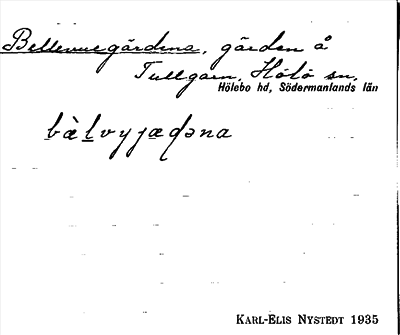 Bellevuegärdena, gärden å
Tullgarn, Hölö sn,
Hölebo hd, Södermanlands län
bàlvyjæɖəna
KARL-ELIS NYSTEDT 1935